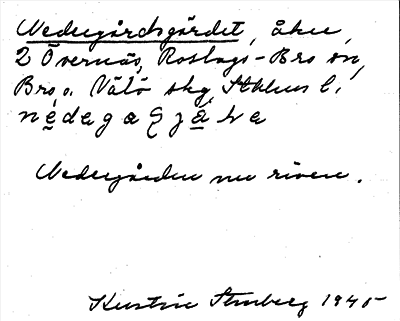 Nedergårdsgärdet, åker,
2 Övernäs, Roslags-Bro sn,
Bro o. Vätö skg, Sthlms l.
Nedergården nu riven.
Kerstin Stenberg 1945